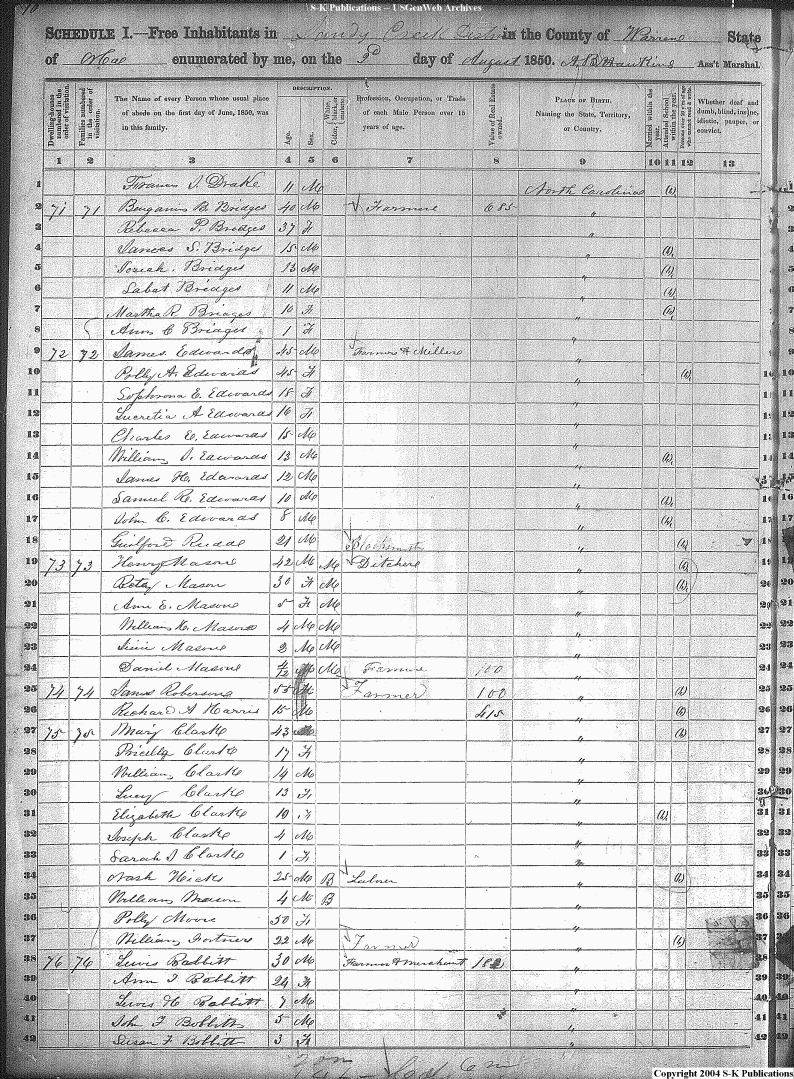 10
S-K Publications – USGenWeb Archives
SCHEDULE I.—Free Inhabitants in Sandy Creek District in the County of Warren State
of N Ca enumerated by me, on the day of August 1850. Hawkins Ass't Marshal.
Dwelling-houses numbered in the order of visitation.
Families numbered in the order of visitation.
The Name of every Person whose usual place of abode on the first day of June, 1850, was in this family.
DESCRIPTION.
Age.
Sex.
White, Color, black, or mulatto.
Profession, Occupation, or Trade of each Male Person over 15 years of age.
Value of Real Estate owned.
PLACE OF BIRTH.
Naming the State, Territory, or Country.
Married within the year.
Attended School within the year.
Persons over 20 y'rs of age who cannot read & write.
Whether deaf and dumb, blind, insane, idiotic, pauper, or convict.
1 2 3 4 5 6 7 8 9 10 11 12 13
1 Drake 11 M North Carolina 1
2 71 71 Benjamin B. Bridges 40 M Farmer 685 " 2
3 Rebecca P. Bridges 37 F " 3
4 S. Bridges 15 M " 4
5 Bridges 13 M " 5
6 Labat Bridges 11 M " 6
7 Martha R. Bridges 10 F " 7
8 Ann C Bridges 1 F " 8
9 72 72 James Edwards 45 M Farmer & Miller " 9
10 Polly A. Edwards 45 F " 10
11 Sophrona E. Edwards 18 F " 11
12 Lucretia A Edwards 16 F " 12
13 Charles E. Edwards 15 M " 13
14 William Edwards 13 M " 14
15 James H. Edwards 12 M " 15
16 Samuel R. Edwards 10 M " 16
17 John C. Edwards 8 M " 17
18 Guilford Rudde 21 M Blacksmith " 18
19 73 73 Henry Mason 42 M M Ditcher " 19
20 Betsy Mason 30 F M " 20
21 Ann E. Mason 5 F M " 21
22 William H. Mason 4 M M " 22
23 Mason 2 M M " 23
24 Daniel Mason 4/12 M M Farmer 100 " 24
25 74 74 James Roberson 55 M Farmer 100 " 25
26 Richard A Harris 15 M 415 " 26
27 75 75 Mary Clark 43 " 27
28 Pricilla Clark 17 F " 28
29 William Clark 14 M " 29
30 Lucy Clark 13 F " 30
31 Elizabeth Clark 10 F " 31
32 Joseph Clark 4 M " 32
33 Sarah J Clark 1 F " 33
34 Nash Hicks 25 M B Laborer " 34
35 William Mason 4 M B " 35
36 Polly Moore 50 F " 36
37 William Fortner 22 M Farmer " 37
38 76 76 Lewis Babbitt 30 M Farmer & Merchant " 38
39 Ann F Babbitt 24 F " 39
40 Lewis H Babbitt 7 M " 40
41 John F Bobbitt 5 M " 41
42 Susan F Bobbitt 3 F " 42
Copyright 2004 S-K Publications